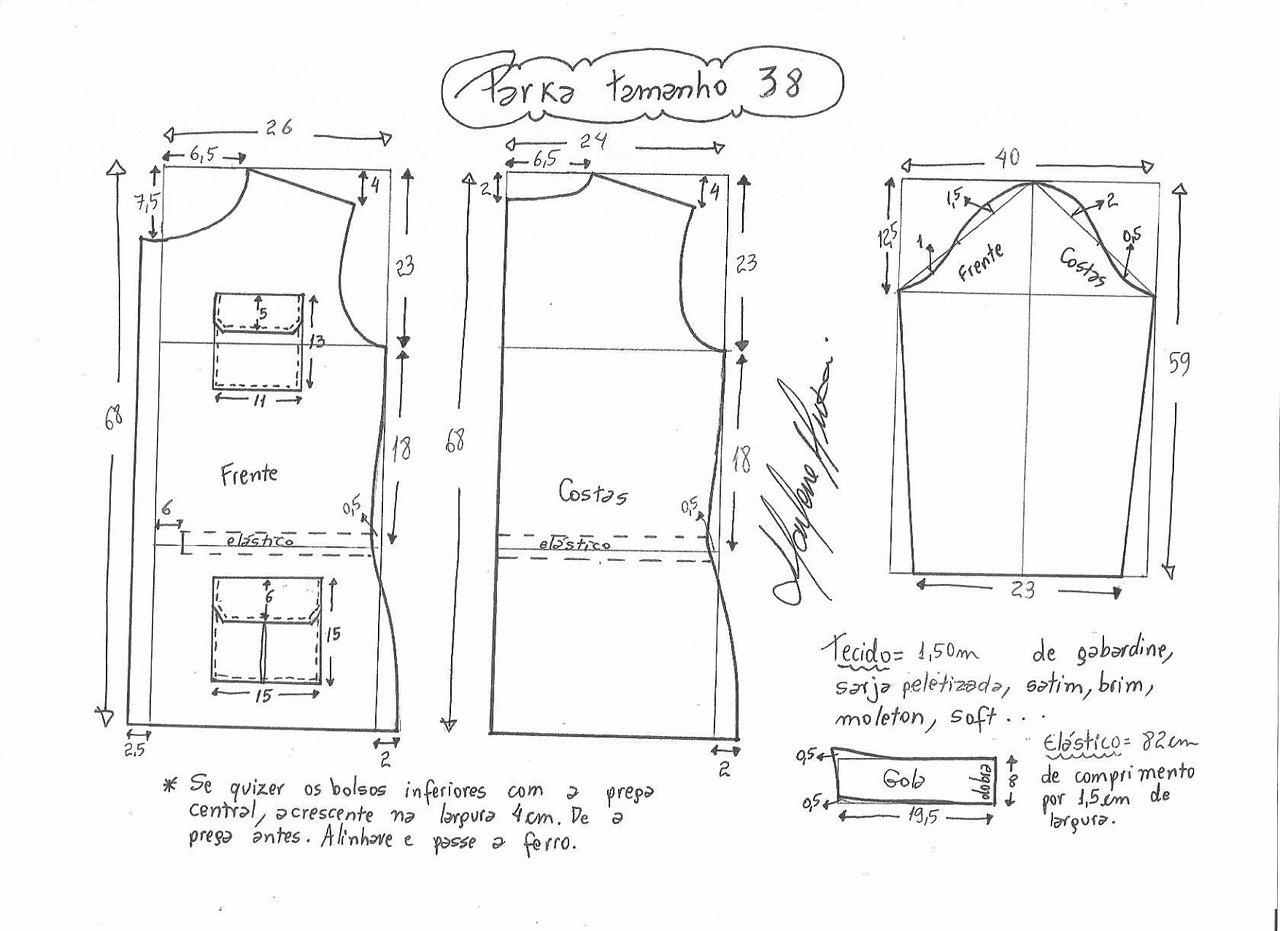 Parka tamanho 38
26
6,5
7,5
4
23
5
13
11
68
18
Frente
6
0,5
elástico
6
15
15
2,5
2
24
6,5
2
4
23
68
18
Costas
0,5
elástico
2
40
1,5
2
12,5
1
0,5
Frente
Costas
59
23
Tecido= 1,50m de gabardine,
sarja peletizada, satim, brim,
moleton, soft...
Elástico= 82cm
de comprimento
por 1,5cm de
largura.
0,5
Gola
dobra
8
0,5
19,5
* Se quizer os bolsos inferiores com a prega
central, acrescente na largura 4cm. De a
prega antes. Alinhave e passe a ferro.